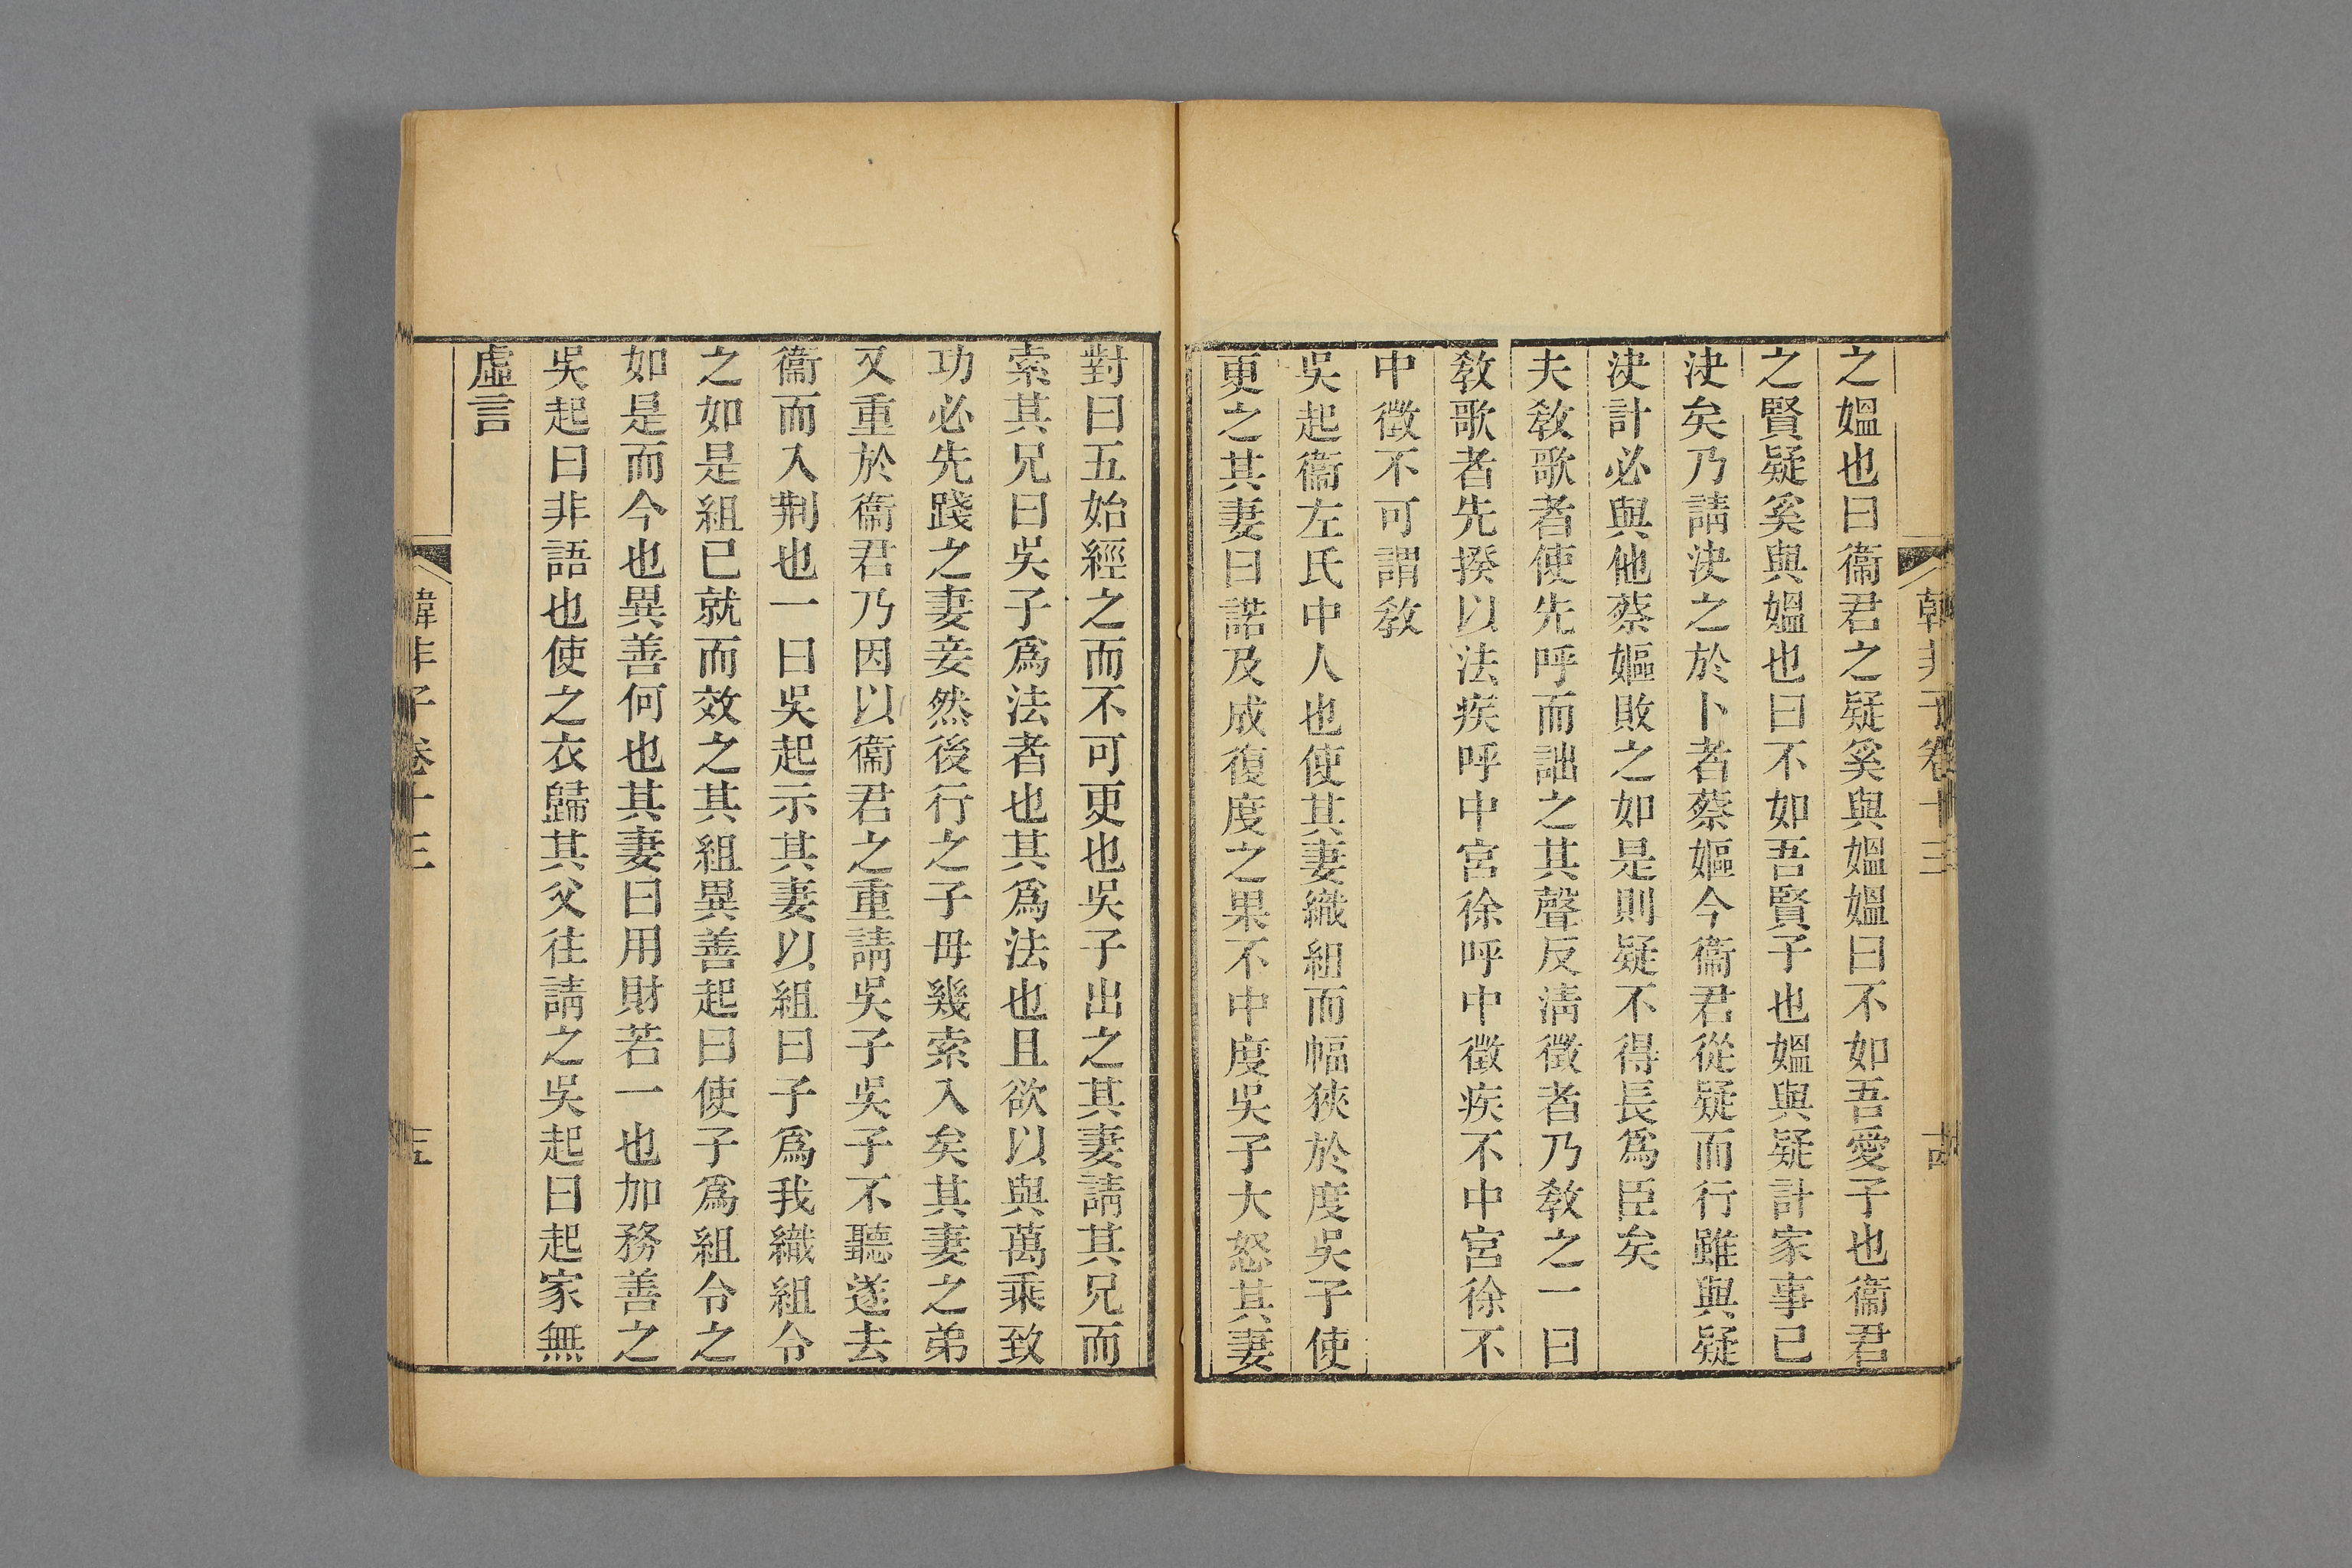 韓非子卷十三
之媼也曰衞君之疑奚與媼媼曰不如吾愛子也衞君
之賢疑奚與媼也曰不如吾賢子也媼與疑計家事已
決矣乃請決之於卜者蔡嫗今衞君從疑而行雖與疑
決計必與他蔡嫗敗之如是則疑不得長爲臣矣
夫敎歌者使先呼而詘之其聲反淸徵者乃敎之一曰
敎歌者先揆以法疾呼中宮徐呼中徵疾不中宮徐不
中徵不可謂敎
吳起衞左氏中人也使其妻織組而幅狹於度吳子使
更之其妻曰諾及成復度之果不中度吳子大怒其妻
對曰五始經之而不可更也吳子出之其妻請其兄而
索其兄曰吳子爲法者也其爲法也且欲以與萬乘致
功必先踐之妻妾然後行之子毋幾索入矣其妻之弟
又重於衞君乃因以衞君之重請吳子吳子不聽遂去
衞而入荆也一曰吳起示其妻以組曰子爲我織組令
之如是組已就而效之其組異善起曰使子爲組令之
如是而今也異善何也其妻曰用財若一也加務善之
吳起曰非語也使之衣歸其父往請之吳起曰起家無
虛言
韓非子卷十三